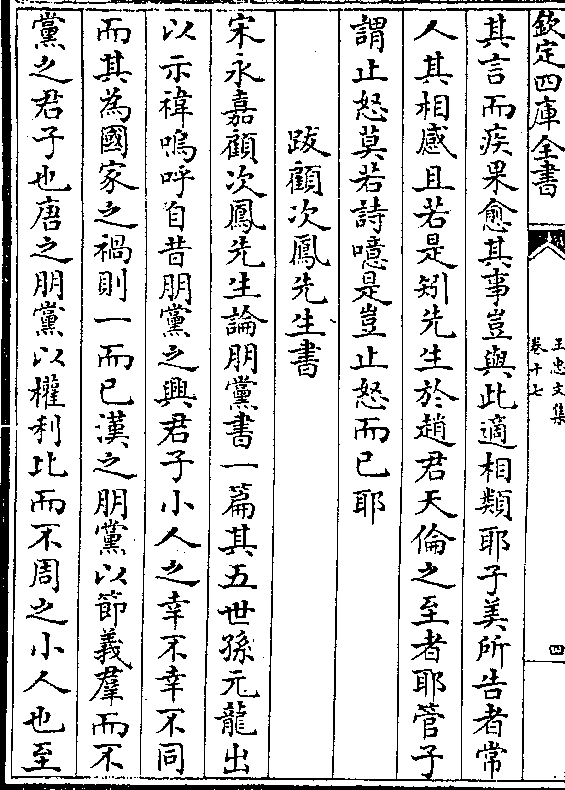 欽定四庫全書
王忠文集
卷十七
四
其言而疾果愈其事豈與此適相類耶子美所告者常
人其相感且若是矧先生於趙君天倫之至者耶管子
謂止怒莫若詩噫是豈止怒而已耶
跋顧次鳳先生書
宋永嘉顧次鳳先生論朋黨書一篇其五世孫元龍出
以示禕嗚呼自昔朋黨之興君子小人之幸不幸不同
而其為國家之禍則一而已漢之朋黨以節義羣而不
黨之君子也唐之朋黨以權利比而不周之小人也至